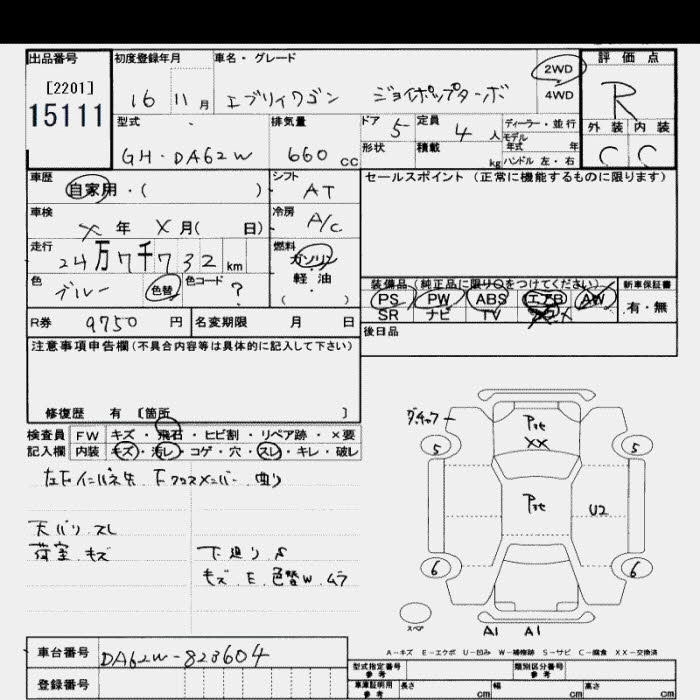 出品番号
[2201]
15111
初度登録年月
車名・グレード
16 11 月
エブリイワゴン ジョイポップターボ
2WD
4WD
評価点
R
外装 内装
C C
型式
GH-DA62W
排気量
660 CC
ドア 5
定員 4 人
ディーラー・並行
モデル
年式 年
形状
積載 kg
ハンドル 左・右
車歴
自家用・( )
シフト
AT
セールスポイント (正常に機能するものに限ります)
車検
X 年 X 月( 日)
冷房
A/C
走行
24万7千732 km
燃料
ガソリン
軽油
( ・ )
色
ブルー
色替
色コード
?
装備品(純正品に限り○をつけてください)
PS PW ABS エアB AW
SR ナビ TV
新車保証書
有・無
R券 9750 円
名変期限 月 日
後日品
注意事項申告欄(不具合内容等は具体的に記入して下さい)
修復歴 有 〔箇所 〕
検査員
記入欄
FW キズ・飛石・ヒビ割・リペア跡・×要
内装 キズ・汚レ・コゲ・穴・スレ・キレ・破レ
左Fインパネ先 Fクロスメンバー 曲り
天バリ スレ
荷室 キズ
下廻り S
キズ、E、色替W、ムラ
5
5
XX
U2
6
6
スペア
A1 A1
A-キズ E-エクボ U-凹み W-補修跡 S-サビ C-腐食 XX-交換済
車台番号 DA62W-823604
登録番号
型式指定番号
参考
類別区分番号
参考
車庫証明用
参考
長さ cm
幅 cm
高さ cm